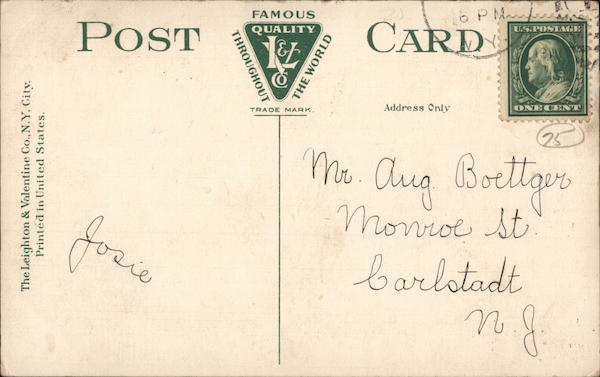 POST CARD
FAMOUS
QUALITY
THROUGHOUT
THE WORLD
L&V
CO
TRADE MARK.
6 PM
N.Y.
U.S. POSTAGE
ONE CENT
Address Only
25
The Leighton & Valentine Co., N.Y. City.
Printed in United States.
Josie
Mr. Aug Boettger
Monroe St.
Carlstadt
N.J.